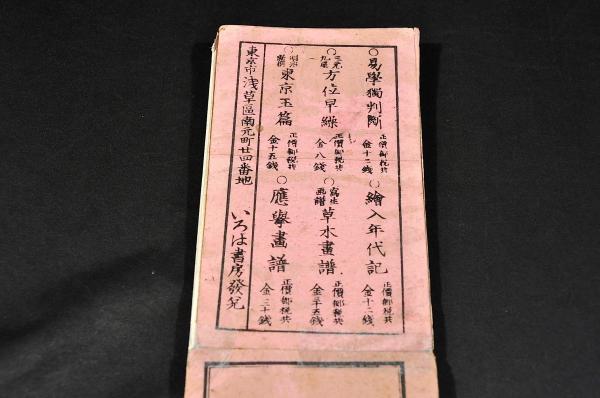 ○易學獨判斷 正價郵税共 金十二錢
○繪入年代記 正價郵税共 金十二錢
三元九星 方位早繰 正價郵税共 金八錢
寫生画譜 草木畫譜 正價郵税共 金三十五錢
○明治新撰 東京玉篇 正價郵税共 金十五錢
○應擧畫譜 正價郵税共 金三十錢
東京市淺草區南元町廿四番地
いろは書房發兌